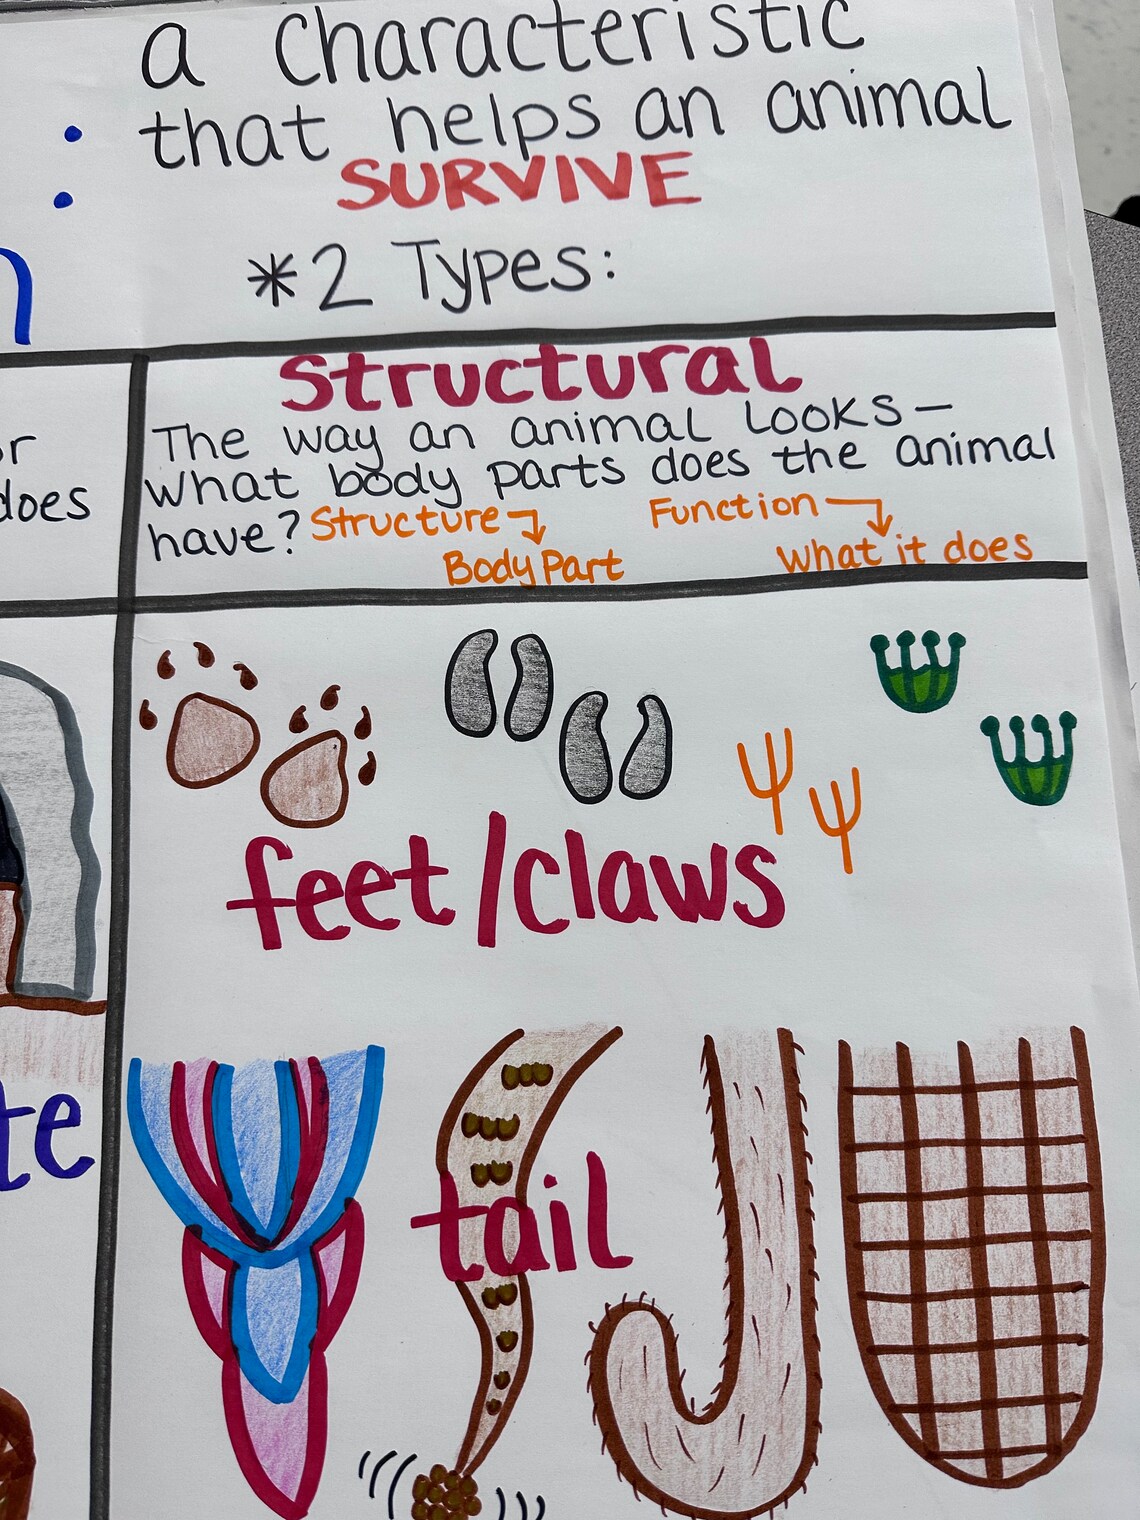 a characteristic
that helps an animal
SURVIVE
*2 Types:
Structural
The way an animal looks—
what body parts does the animal
have?
Structure
Body Part
Function
what it does
does
feet/claws
te
tail